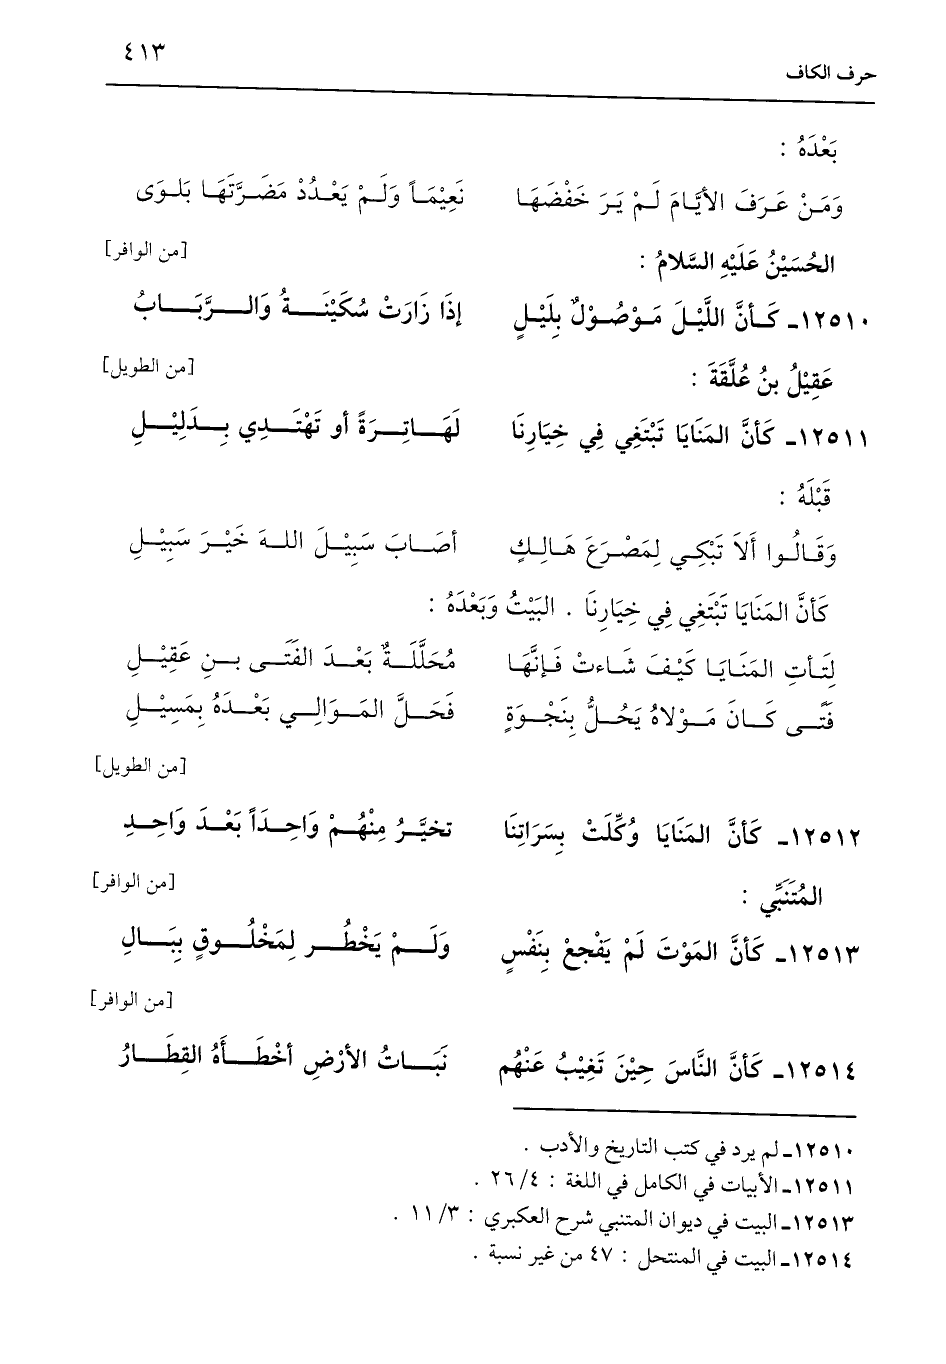 ٤١٣
حرف الكاف
بَعْدَهُ :
وَمَنْ عَرَفَ الأَيَّامَ لَمْ يَرَ خَفْضَهَا نَعِيْمَاً وَلَمْ يَعْدُدْ مَضَرَّتَهَا بَلوَى
الحُسَيْنُ عَلَيْهِ السَّلامُ : [من الوافر]
١٢٥١٠ـ كَأنَّ اللَّيْلَ مَوْصُوْلٌ بِلَيْلٍ إذَا زَارَتْ سُكَيْنَةُ وَالرَّبَابُ
عَقِيْلُ بنُ عُلَّقَةَ : [من الطويل]
١٢٥١١ـ كَأنَّ المَنَايَا تَبْتَغِي فِي خِيَارِنَا لَهَاتِرَةً أو تَهْتَدِي بِدَلِيْلِ
قَبْلَهُ :
وَقَالُوا أَلاَ تَبْكِي لِمَصْرَعَ هَالِكٍ أصَابَ سَبِيْلَ اللهَ خَيْرَ سَبِيْلِ
كَأنَّ المَنَايَا تَبْتَغِي فِي خِيَارِنَا . البَيْتُ وَبَعْدَهُ :
لِتَأتِ المَنَايَا كَيْفَ شَاءتْ فَإنَّهَا مُحَلَّلَةٌ بَعْدَ الفَتَى بنِ عَقِيْلِ
فَتَى كَانَ مَوْلاهُ يَحُلُّ بِنَجْوَةٍ فَحَلَّ المَوَالِي بَعْدَهُ بِمَسِيْلِ
[من الطويل]
١٢٥١٢ـ كَأنَّ المَنَايَا وُكِّلَتْ بِسَرَاتِنَا تخيَّرُ مِنْهُمْ وَاحِدَاً بَعْدَ وَاحِدِ
المُتَنَبِّي : [من الوافر]
١٢٥١٣ـ كَأنَّ المَوْتَ لَمْ يَفْجعْ بِنَفْسٍ وَلَمْ يَخْطُر لِمَخْلُوقٍ بِبَالِ
[من الوافر]
١٢٥١٤ـ كَأنَّ النَّاسَ حِيْنَ تَغِيْبُ عَنْهُم نَبَاتُ الأرْضِ أخْطَأَهُ القِطَارُ
١٢٥١٠ـ لم يرد في كتب التاريخ والأدب .
١٢٥١١ـ الأبيات في الكامل في اللغة : ٤/ ٢٦ .
١٢٥١٣ـ البيت في ديوان المتنبي شرح العكبري : ٣/ ١١ .
١٢٥١٤ـ البيت في المنتحل : ٤٧ من غير نسبة .